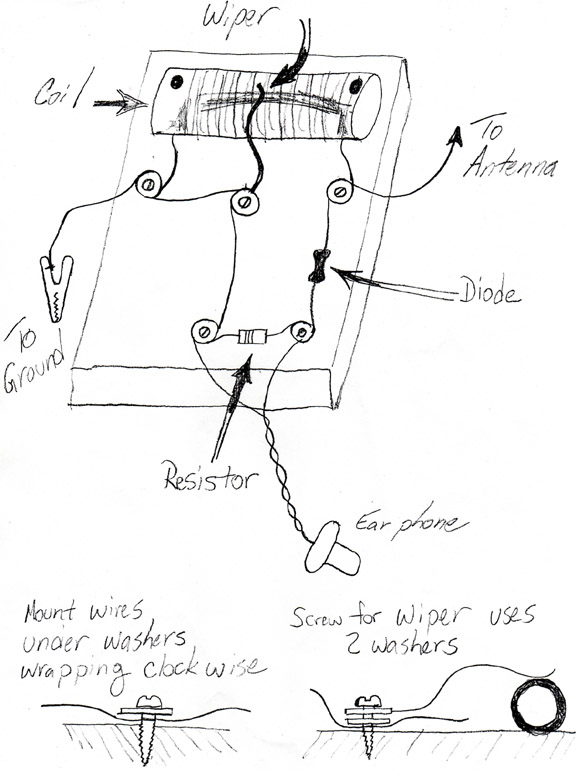 Wiper
Coil
To
Antenna
Diode
To
Ground
Resistor
Ear phone
Mount wires
under washers
wrapping clockwise
Screw for wiper uses
2 washers